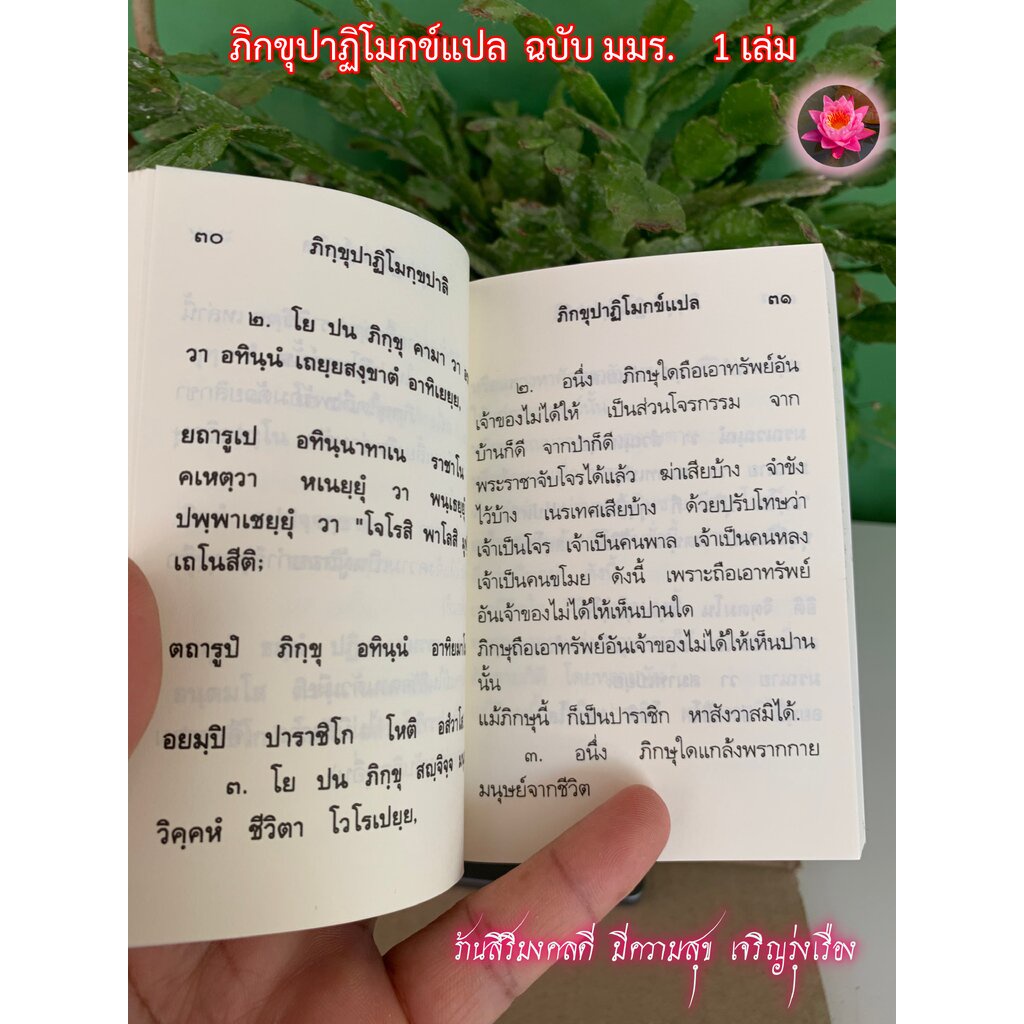 ภิกขุปาฏิโมกข์แปล ฉบับ มมร. 1 เล่ม
๓๐ ภิกฺขุปาฏิโมกฺขปาลิ
๒. โย ปน ภิกฺขุ คามา วา
วา อทินฺนํ เถยฺยสงฺขาตํ อาทิเยยฺย,
ยถารูเป อทินฺนาทาเน ราชาโน
คเหตฺวา หเนยฺยุํ วา พนฺเธยฺยุํ
ปพฺพาเชยฺยุํ วา "โจโรสิ พาโลสิ
เถโนสีติ;
ตถารูปํ ภิกฺขุ อทินฺนํ
อยมฺปิ ปาราชิโก โหติ
๓. โย ปน ภิกฺขุ สญฺจิจฺจ
วิคฺคหํ ชีวิตา โวโรเปยฺย,
ภิกขุปาฏิโมกข์แปล ๓๑
๒. อนึ่ง ภิกษุใดถือเอาทรัพย์อัน
เจ้าของไม่ได้ให้ เป็นส่วนโจรกรรม จาก
บ้านก็ดี จากป่าก็ดี
พระราชาจับโจรได้แล้ว ฆ่าเสียบ้าง จำขัง
ไว้บ้าง เนรเทศเสียบ้าง ด้วยปรับโทษว่า
เจ้าเป็นโจร เจ้าเป็นคนพาล เจ้าเป็นคนหลง
เจ้าเป็นคนขโมย ดังนี้ เพราะถือเอาทรัพย์
อันเจ้าของไม่ได้ให้เห็นปานใด
ภิกษุถือเอาทรัพย์อันเจ้าของไม่ได้ให้เห็นปาน
นั้น
แม้ภิกษุนี้ ก็เป็นปาราชิก หาสังวาสมิได้.
๓. อนึ่ง ภิกษุใดแกล้งพรากกาย
มนุษย์จากชีวิต
ร้านสิริมงคลดี มีความสุข เจริญรุ่งเรือง